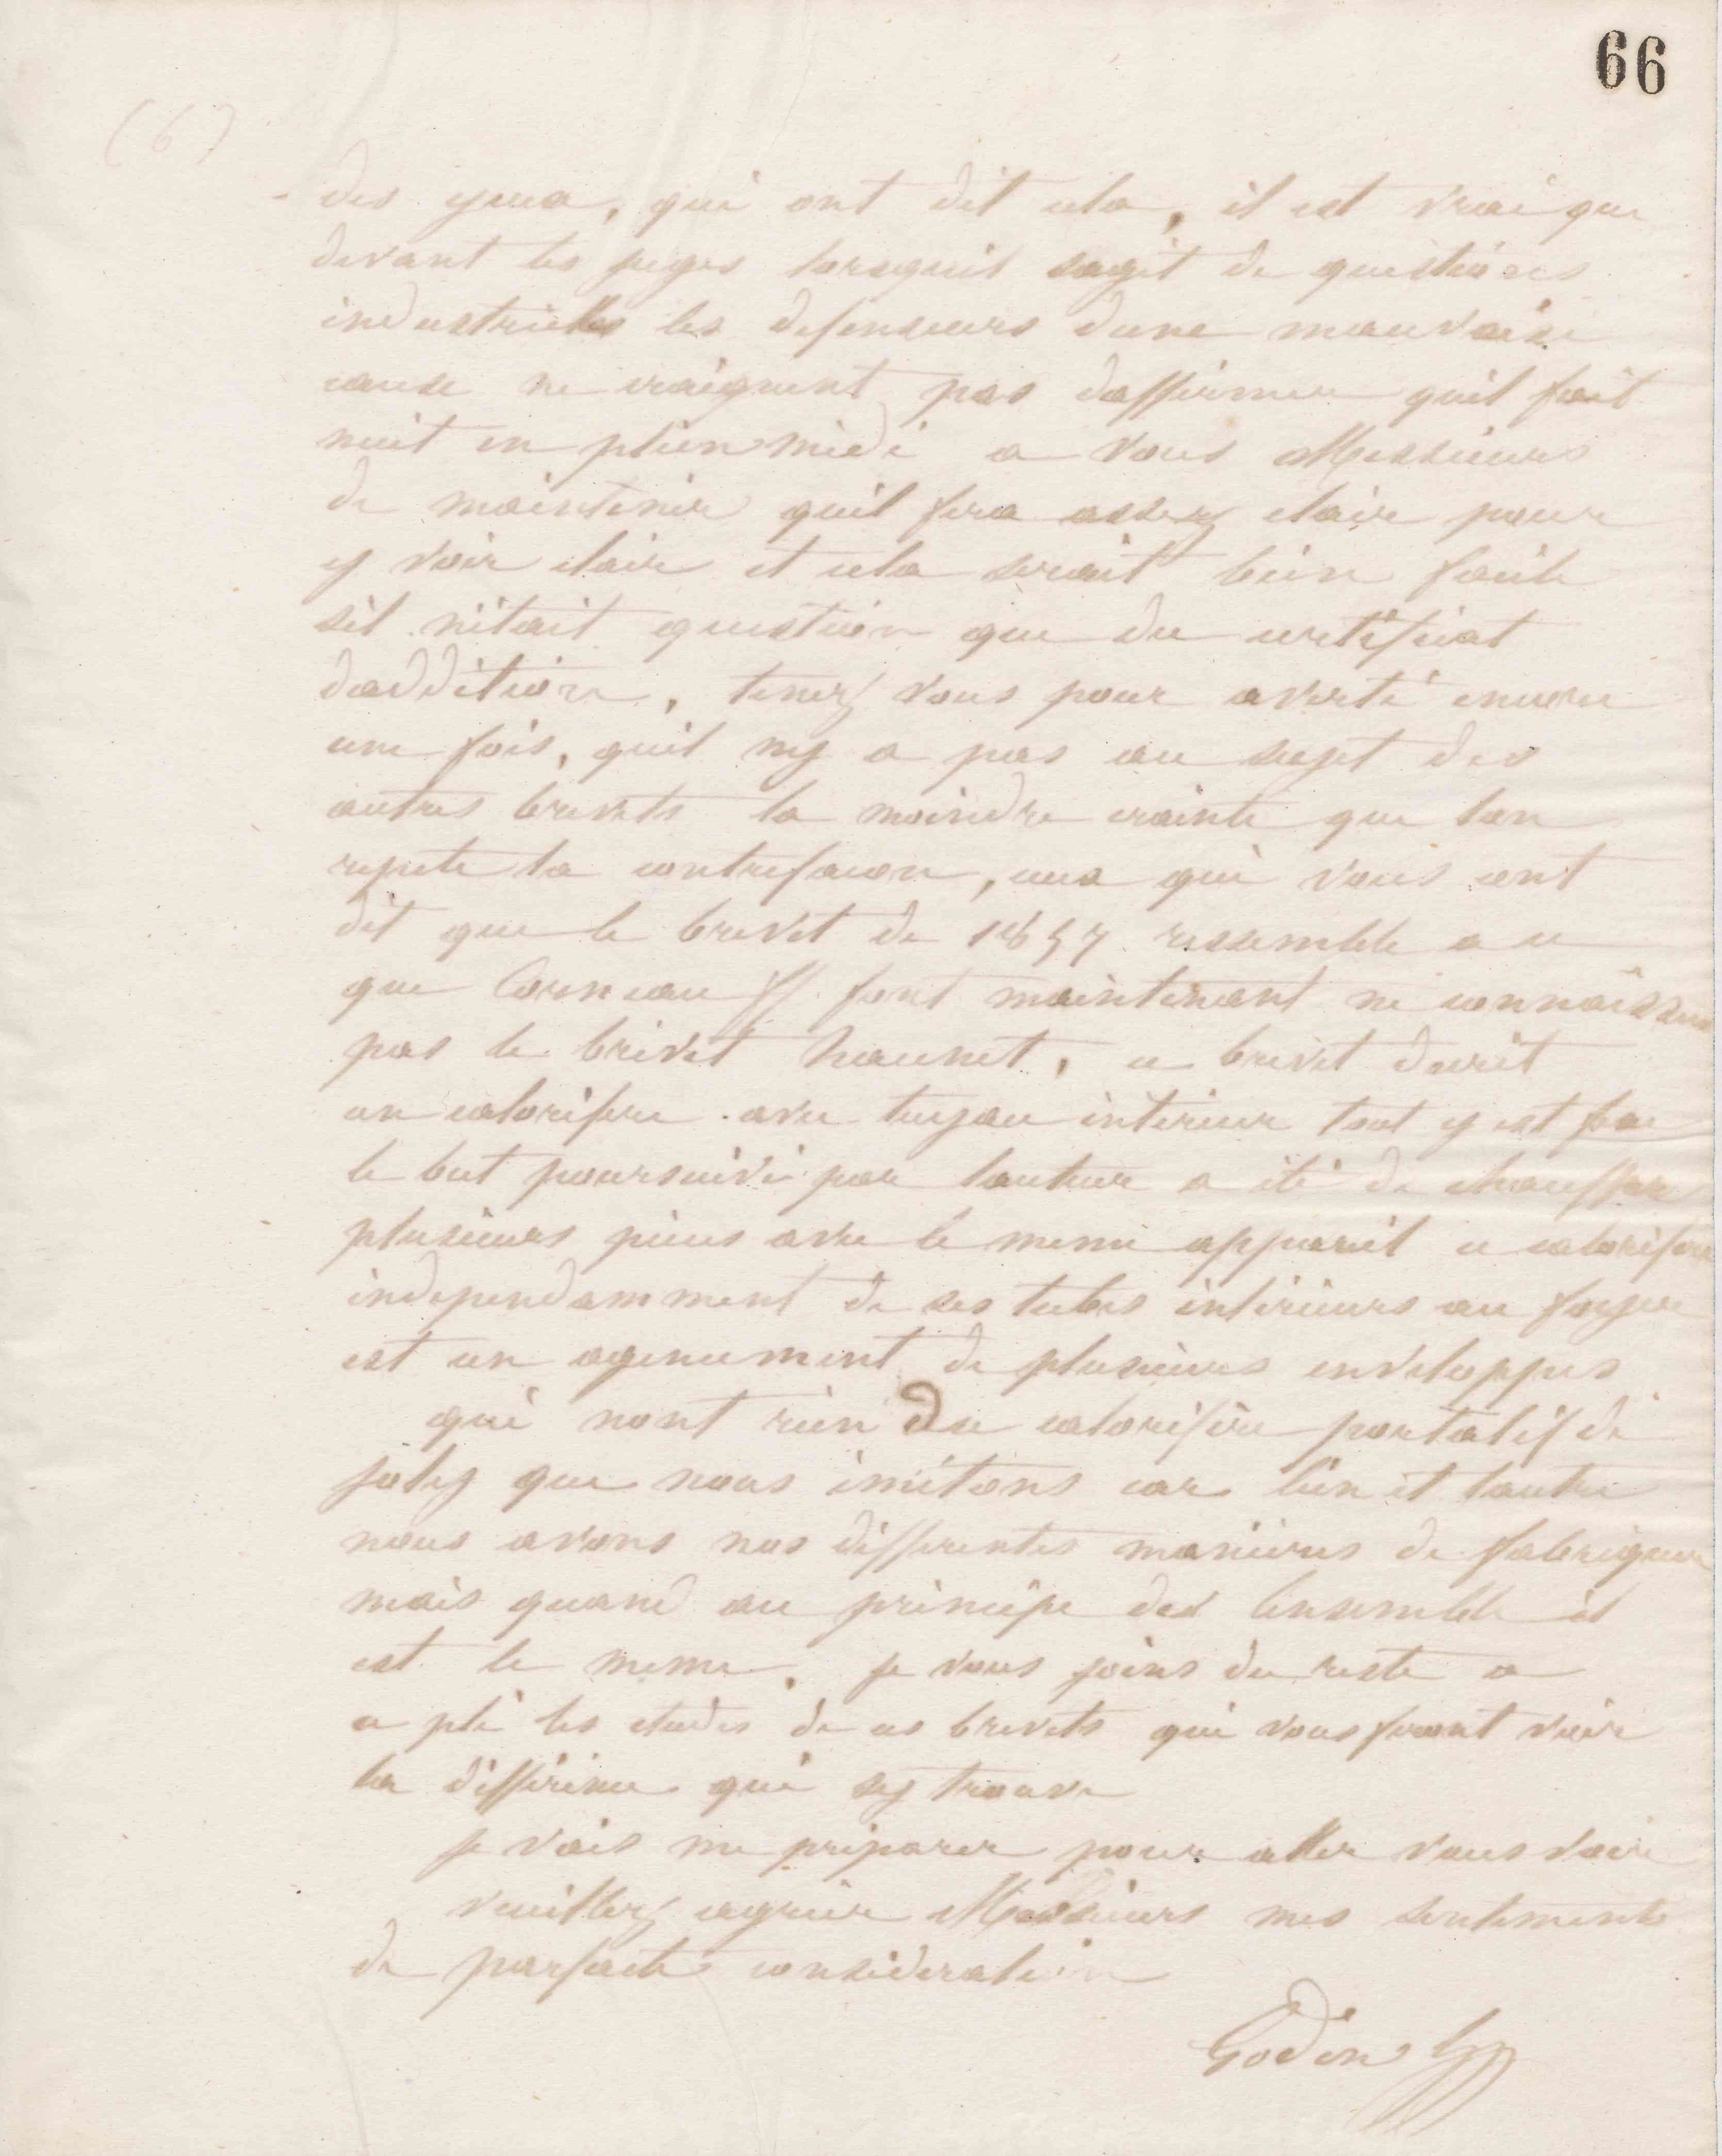 66
(6)
des yeux, qui ont dit cela, il est vrai que
devant les juges lorsquil sagit de questions
industrielles les defenseurs dune mauvaise
cause ne craignent pas daffirmer quil fait
nuit en plein midi a vous Messieurs
de maintenir quil fera assez claire pour
y voir claire et cela serait bien facile
sil nétait question que du certificat
daddition, tenez vous pour averti encore
une fois, quil ny a pas au sujet des
autres brevets la moindre crainte que lon
repete la contrefacon, ceux qui vous ont
dit que le brevet de 1857 ressemble a ce
que Corneau ff. font maintenant ne connaissent
pas le brevet haunet, ce brevet decrit
un calorifere avec tuyau interieur tout y est
le but poursuivi par lauteur a été de chauffer
plusieurs pieces avec le meme appareil ce calorifere
independamment de ses tubes intérieurs au foyer
est un agencement de plusieurs enveloppes
qui nont rien du calorifère portatif de
joly que nous imitons car lun et lautre
nous avons nos differentes manieres de fabriquer
mais quand au principe des lensemble il
est le meme, je vous joins du reste a
ce pli les etudes de ces brevets qui vous feront voir
la différence qui sy trouve
je vais me préparer pour aller vous voir
veuillez agréer Messieurs mes sentiments
de parfaite consideration
Godin